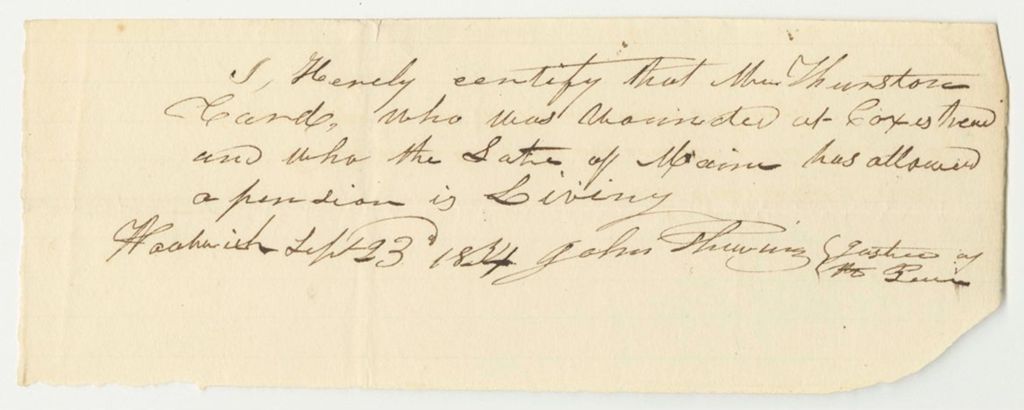 I, Hereby certify that Mr Thurston
Card, who was Wounded at Coxes head
and who the Sate of Maine has allowed
a pension is Living
Woolwich Sept 23d 1834 John Thwing { Justice of
the Peace